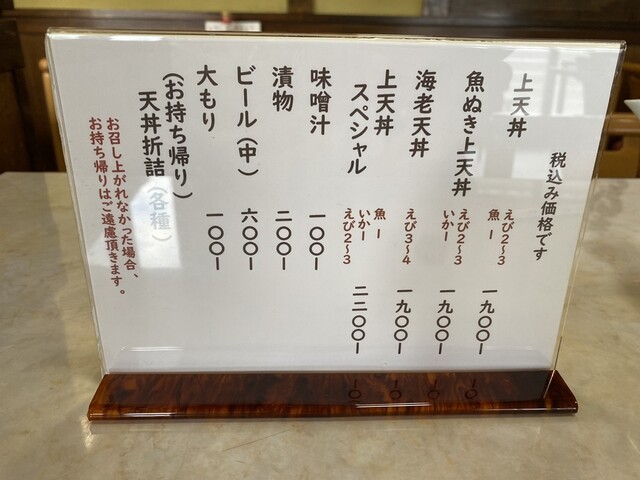 税込み価格です
上天丼 えび2〜3 魚一 一九〇〇ー
魚ぬき上天丼 えび2〜3 いか一 一九〇〇ー
海老天丼 えび3〜4 一九〇〇ー
上天丼スペシャル えび2〜3 いか一 魚一 二二〇〇ー
味噌汁 一〇〇ー
漬物 二〇〇ー
ビール(中) 六〇〇ー
大もり 一〇〇ー
(お持ち帰り)
天丼折詰(各種)
お召し上がれなかった場合、
お持ち帰りはご遠慮頂きます。